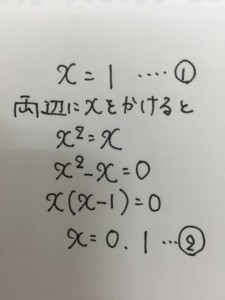 x=1 ····①
両辺にxをかけると
x²=x
x²-x=0
x(x-1)=0
x=0.1…②